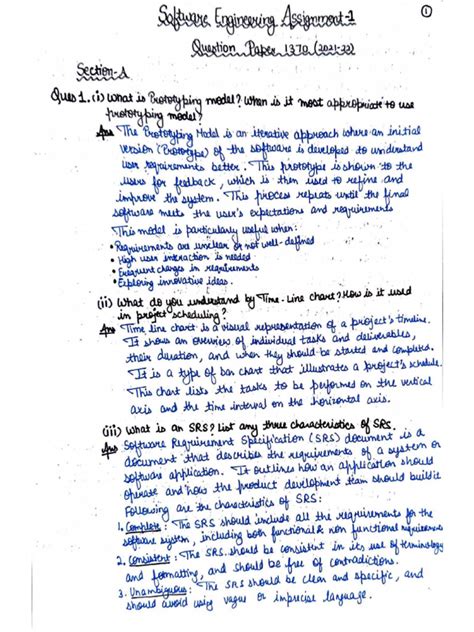 Software Engineering Assignment-1
①
Question Paper 1370 (2021-22)
Section-A
Ques 1. (i) What is Prototyping model? When is it most appropriate to use
prototyping model?
Ans The Prototyping Model is an iterative approach where an initial
version (Prototype) of the software is developed to understand
user requirements better. This prototype is shown to the
users for feedback, which is then used to refine and
improve the system. This process repeats until the final
software meets the user's expectations and requirements
This model is particularly useful when:
• Requirements are unclear or not well-defined
• High user interaction is needed
• Frequent changes in requirements
• Exploring innovative ideas.
(ii) What do you understand by Time-Line chart? How is it used
in project scheduling?
Ans Time line chart is a visual representation of a project's timeline.
It shows an overview of individual tasks and deliverables,
their duration, and when they should be started and completed.
It is a type of bar chart that illustrates a project's schedule.
This chart lists the tasks to be performed on the vertical
axis and the time interval on the horizontal axis.
(iii) What is an SRS? List any three characteristics of SRS.
Ans Software Requirement Specification (SRS) document is a
document that describes the requirements of a system or
software application. It outlines how an application should
operate and how the product development team should build it
Following are the characteristics of SRS:
1. Complete: The SRS should include all the requirements for the
software system, including both functional & non functional requirements
2. Consistent: The SRS should be consistent in its use of terminology
and formatting, and should be free of contradictions.
3. Unambiguous: The SRS should be clear and specific, and
should avoid using vague or imprecise language.